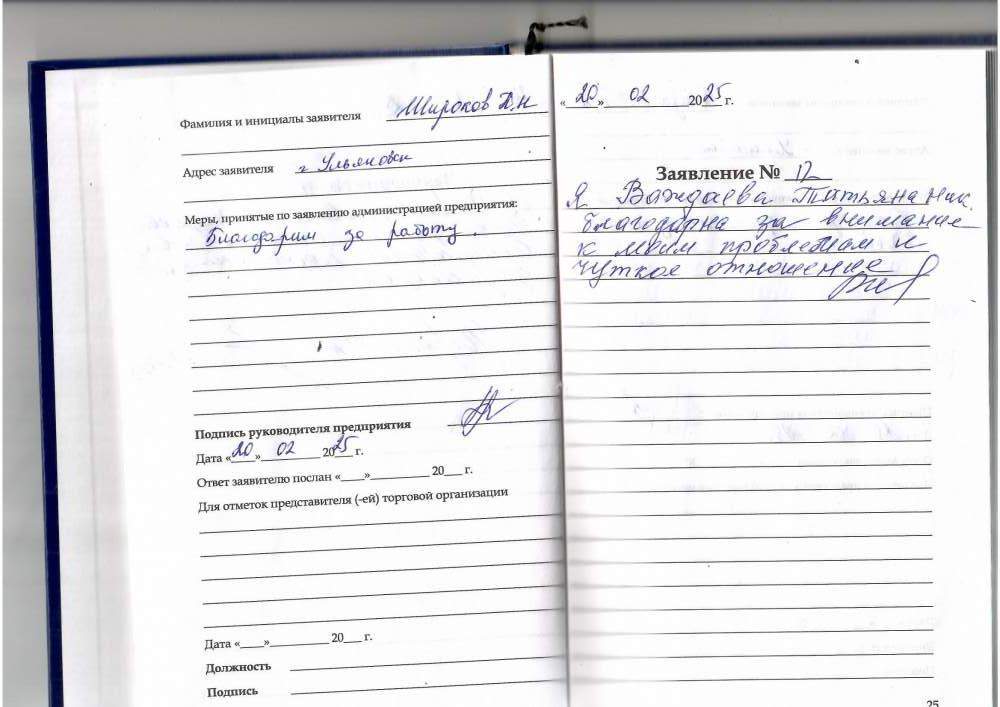 Фамилия и инициалы заявителя Широков Д.Н
Адрес заявителя г Ульяновск
Меры, принятые по заявлению администрацией предприятия:
Благодарим за работу.
Подпись руководителя предприятия
Дата «20» 02 2025 г.
Ответ заявителю послан «____»__________ 20___ г.
Для отметок представителя (-ей) торговой организации
Дата «____»__________ 20___ г.
Должность
Подпись
«20» 02 2025 г.
Заявление № 12
Я Важдаева Татьяна Ник.
благодарна за внимание
к моим проблемам и
чуткое отношение
25